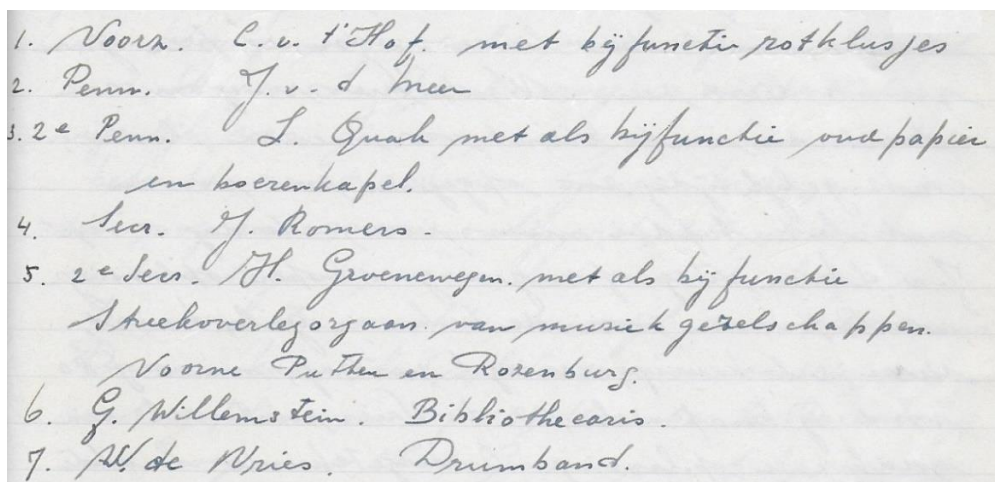 1. Voorz. C. v. t' Hof. met bijfunctie rotklusjes
2. Penn. J. v. d Meer
3. 2e Penn. L. Quak met als bijfunctie oud papier
en boerenkapel.
4. Secr. J. Romers.
5. 2e Secr. H. Groenewegen. met als bij functie
Streekoverlegorgaan. van muziek gezelschappen.
Voorne Putten en Rozenburg.
6. G. Willemstein. Bibliothecaris.
7. W. de Vries. Drumband.